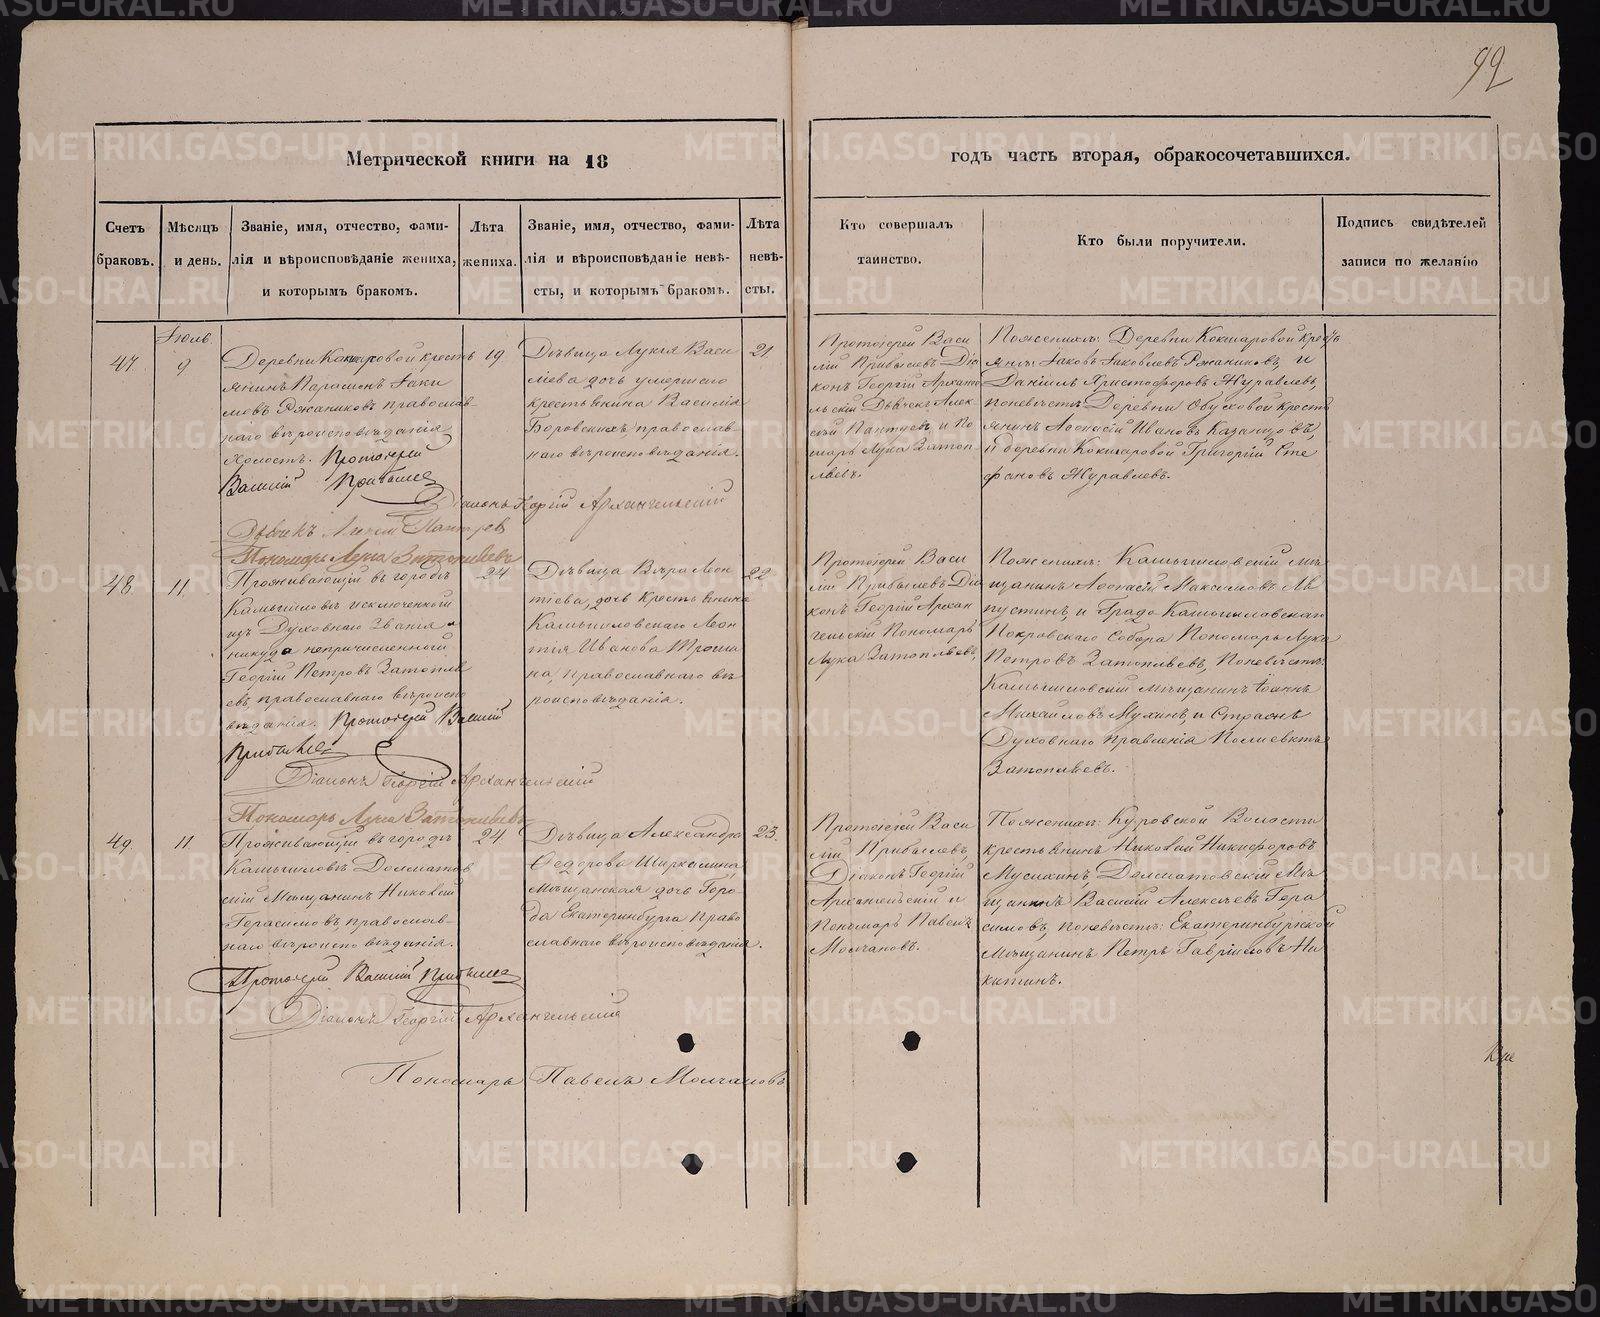 92
Метрической книги на 18
годъ часть вторая, обракосочетавшихся.
Счетъ браковъ.
Мѣсяцъ и день.
Званіе, имя, отчество, фами-
лія и вѣроисповѣданіе жениха,
и которымъ бракомъ.
Лѣта жениха.
Званіе, имя, отчество, фами-
лія и вѣроисповѣданіе невѣ-
сты, и которымъ бракомъ.
Лѣта невѣ-
сты.
Кто совершалъ
таинство.
Кто были поручители.
Подпись свидѣтелей
записи по желанію
Іюль.
47.
9
Деревни Кокшаровой кресть
янинъ Парамонъ Іаки
мовъ Ржаниковъ православ-
наго вѣроисповѣданія
холостъ. Протоіерей
Василій Прибылев
Діаконъ Георгій Архангельскій
Дьячекъ Алексѣй Пантуев
Пономарь Лука Затопляевъ
19
Дѣвица Лукія Васи
льева дочь умершаго
крестьянина Василія
Боровскихъ, православ
наго вѣроисповѣданія.
21.
Протоіерей Васи
лій Прибылевъ Діа
конъ Георгій Архангe
льскій Дьячекъ Алек
сѣй Пантуевъ и По
марь Лука Затоп
ляевъ.
Поженихѣ: Деревни Кокшаровой кресть
янъ: Іаковъ Іаковлевъ Ржаниковъ, и
Даніилъ Христофоровъ Журавлевъ,
поневѣстѣ: Деревни Обуховой кресть
янинъ Афонасій Ивановъ Казанцовъ,
и деревни Кокшаровой Григорій Сте
фановъ Журавлевъ.
48
11.
Проживающій въ городѣ
Камышловѣ исключенной
изъ Духовнаго званія и
никуда непричисленной
Георгій Петровъ Затопля
евъ, православнаго вѣроиспо
вѣданія. Протоіерей Василій
Прибылев
Діаконъ Георгій Архангельскій
Пономарь Лука Затопляевъ
24
Дѣвица Вѣра Леон
тіева, дочь крестьянина
Камышловскаго Леон
тія Иванова Троши
на, православнаго вѣ
роисповѣданія.
22.
Протоіерей Васи
лій Прибылевъ Діа
конъ Георгій Архан
гельскій Пономарь
Лука Затопляевъ.
Поженихѣ: Камышловскій мѣ
щанинъ Афонасій Максимовъ Ла
пустинъ, и Града Камышловскаго
Покровскаго Собора Пономарь Лука
Петровъ Затопляевъ, Поневѣстѣ:
Камышловскій мѣщанинъ Іоаннъ
Михайловъ Мухинъ, и
Духовнаго правленія Полиевктъ
Затопляевъ.
49.
11
Проживающій въ городѣ
Камышловѣ Далматов
скій Мѣщанинъ Николай
Герасимовъ православ-
наго вѣроисповѣданія.
Протоіерей Василій Прибылев
Діаконъ Георгій Архангельскій
Пономарь Павелъ Молчановъ
24
Дѣвица Александра
Ѳедорова Ширкалина,
Мѣщанская дочь Горо-
да Екатеринбурга Право
славнаго вѣроисповѣданія.
23.
Протоіерей Васи
лій Прибылевъ,
Діаконъ Георгій
Архангельскій и
Пономарь Павелъ
Молчановъ.
Поженихѣ: Куровской Волости
крестьянинъ Николай Никифоровъ
Мусихинъ, Далматовскій Мѣ
щанинъ Василій Алексѣевъ Гера
симовъ, поневѣстѣ: Екатеринбургской
Мѣщанинъ Петръ Гавріиловъ Ни
китинъ.
METRIKI.GASO-URAL.RU